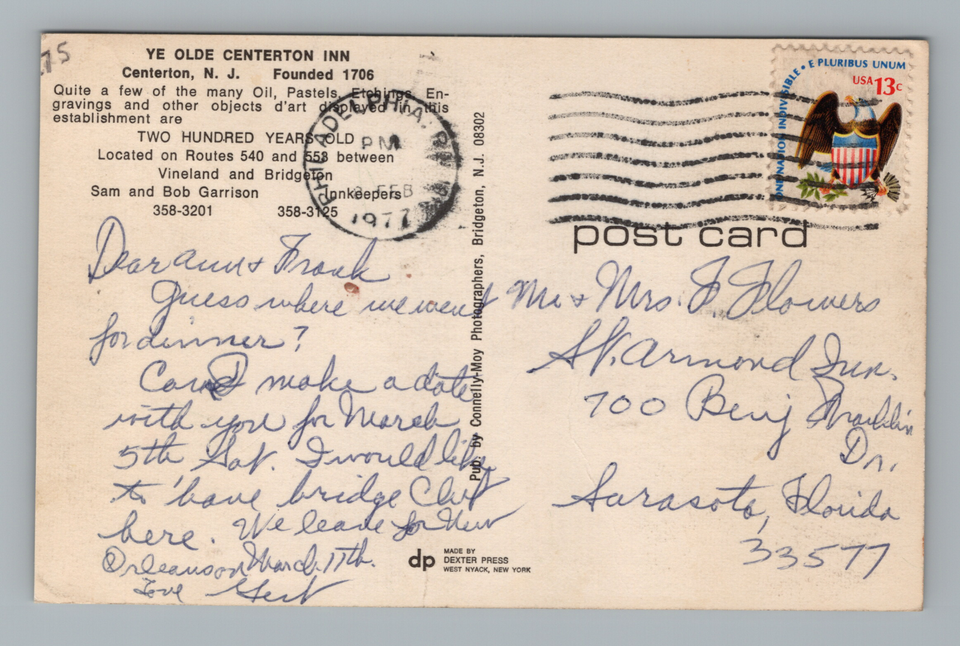 75
YE OLDE CENTERTON INN
Centerton, N. J. Founded 1706
Quite a few of the many Oil, Pastels, Etchings, En-
gravings and other objects d'art displayed in this
establishment are
TWO HUNDRED YEARS OLD
Located on Routes 540 and 553 between
Vineland and Bridgeton
Sam and Bob Garrison Innkeepers
358-3201 358-3125
PHILADELPHIA, PA
PM
FEB
1977
Dear Ann & Frank
Guess where we went
for dinner?
Can I make a date
with you for March
5th Sat. I would like
to have bridge Club
here. We leave for New
Orleans on March 17th.
Love Gert
Pub. by Connelly-Moy Photographers, Bridgeton, N.J. 08302
dp
MADE BY
DEXTER PRESS
WEST NYACK, NEW YORK
ONE NATION INDIVISIBLE • E PLURIBUS UNUM
USA 13c
post card
Mr & Mrs. F. Flowers
St. Armond Inn.
700 Benj Franklin
Dr.
Sarasota, Florida
33577